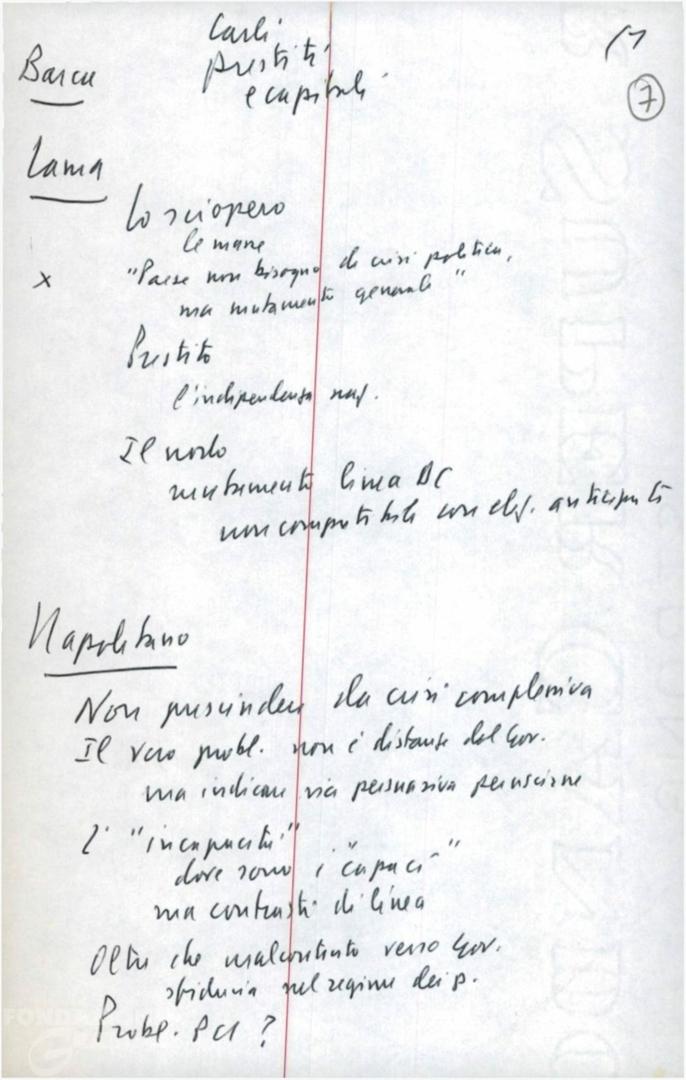 Barca
Carli
prestiti
e capitali
7
Lama
Lo sciopero
le mane
x "Paese non bisogno di crisi politica,
ma mutamento generale"
Prestito
l'indipendenza naz.
Il nodo
mutamento linea DC
non compatibile con elez. anticipate
Napolitano
Non prescindere da crisi complessiva
Il vero probl. non è distanze dal Gov.
ma indicare via persuasiva per uscirne
L' "incapacità"
dove sono i "capaci"
ma contrasti di linea
Oltre che malcontento verso Gov.
sfiducia nel regime dei p.
Probl. PCI ?